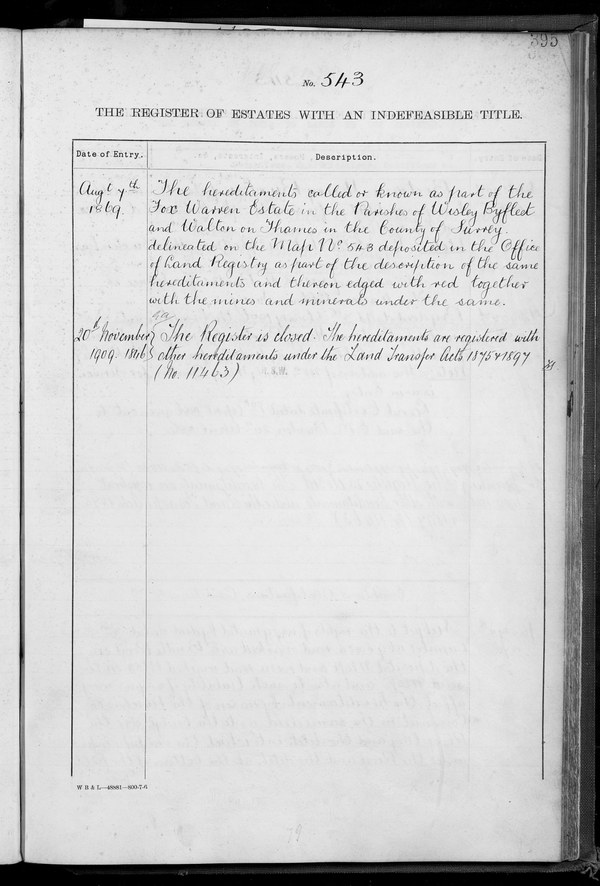 395
No. 543
THE REGISTER OF ESTATES WITH AN INDEFEASIBLE TITLE.
Date of Entry.
Description.
Augt 7th
1869.
The hereditaments called or known as part of the
Fox Warren Estate in the Parishes of Wisley Byfleet
and Walton on Thames in the County of Surrey.
delineated on the Map No. 543 deposited in the Office
of Land Registry as part of the description of the same
hereditaments and thereon edged with red together
with the mines and minerals under the same.
20th November
1909.
The Register is closed. The hereditaments are registered with
other hereditaments under the Land Transfer Acts 1875 & 1897
(No. 11463)
W B & L—48881—800-7-6
79